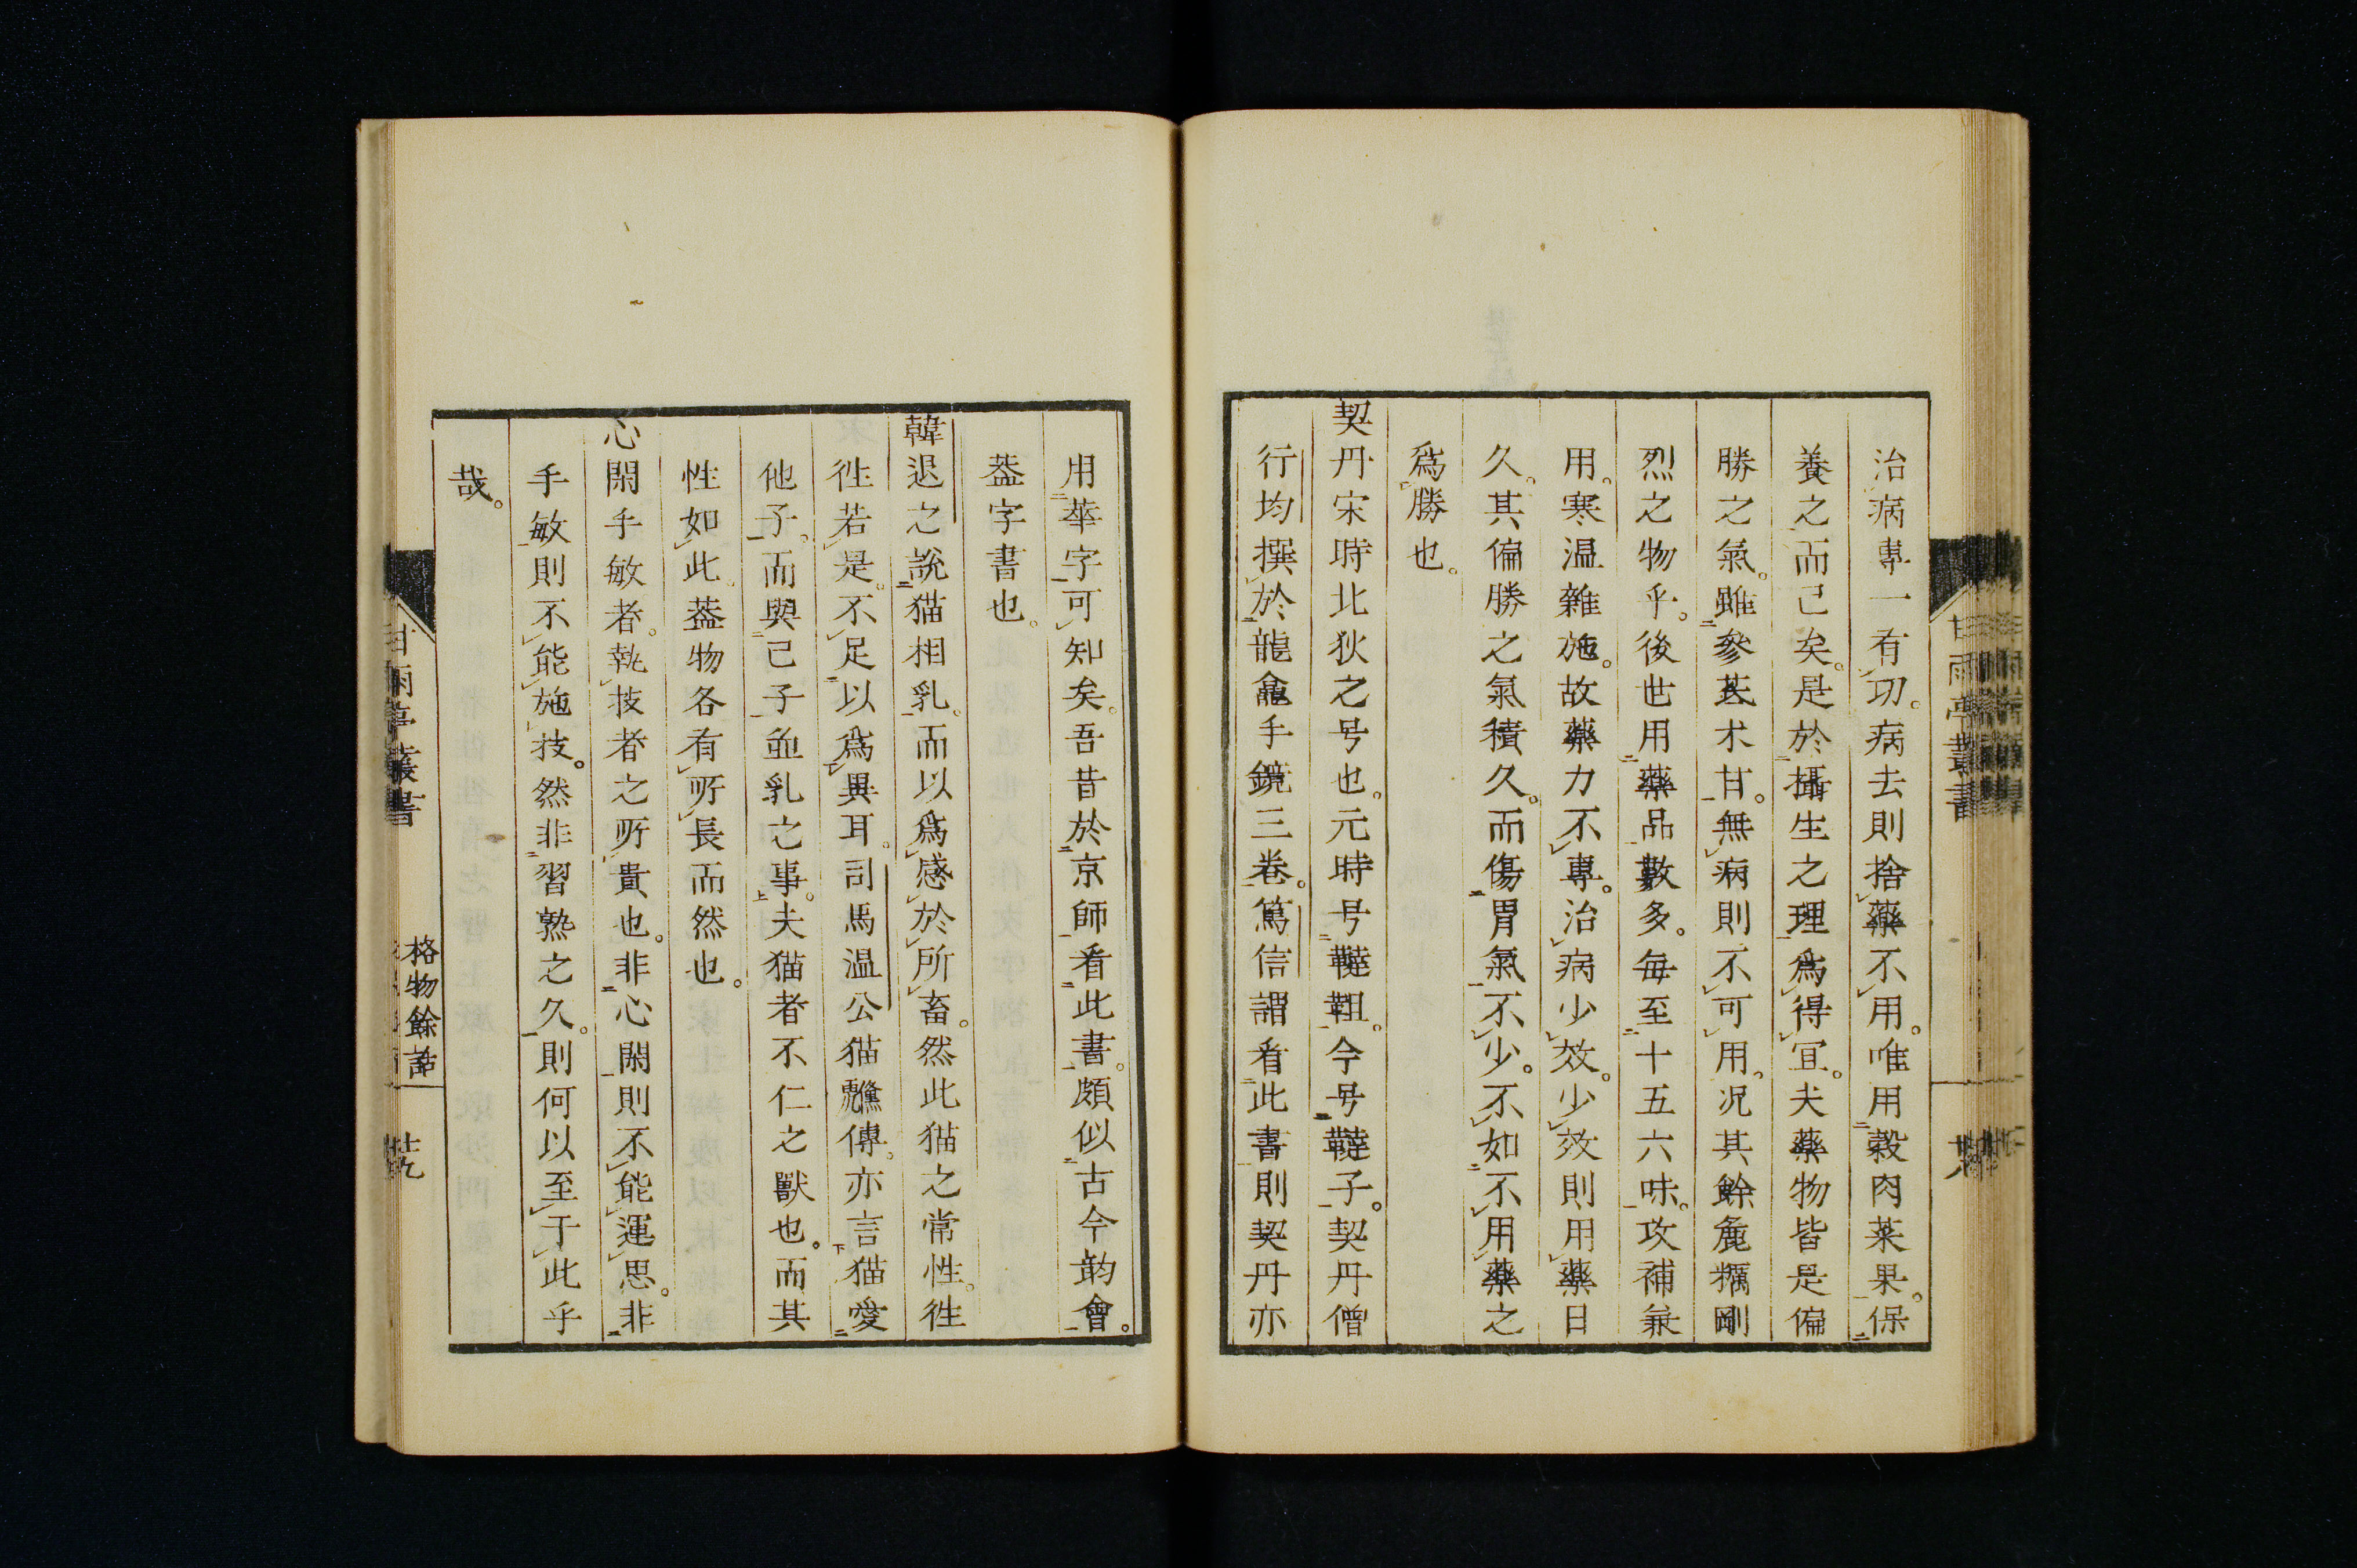 治病專一有功。病去則捨藥不用。唯用穀肉菜果。保
養之而已矣。是於攝生之理爲得宜。夫藥物皆是偏
勝之氣。雖參芪朮甘。無病則不可用。况其餘麁糲剛
烈之物乎。後世用藥品數多。每至十五六味。攻補兼
用。寒温雜施。故藥力不專。治病少效。少效則用藥日
久。其偏勝之氣積久。而傷胃氣不少。不如不用藥之
爲勝也。
契丹宋時北狄之号也。元時号韃靼。今号韃子。契丹僧
行均撰於龍龕手鏡三卷。篤信謂看此書則契丹亦
用華字可知矣。吾昔於京師看此書。頗似古今韵會。
葢字書也。
韓退之說猫相乳。而以爲感於所畜。然此猫之常性。徃
徃若是。不足以爲異耳。司馬温公猫虪傳。亦言猫愛
他子。而與己子並乳之事。夫猫者不仁之獸也。而其
性如此。葢物各有所長而然也。
心閑手敏者。執技者之所貴也。非心閑則不能運思。非
手敏則不能施技。然非習熟之久。則何以至于此乎
哉。
甘雨亭叢書
甘雨亭叢書
格物餘話